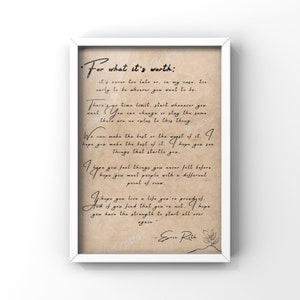 For what it's worth:
it's never too late or, in my case, too
early to be whoever you want to be.
There's no time limit, start whenever you
want. You can change or stay the same
there are no rules to this thing.
We can make the best or the worst of it. I
hope you make the best of it. I hope you see
things that startle you.
I hope you feel things you never felt before
I hope you meet people with a different
point of view.
I hope you live a life you're proud of.
And if you find that you're not, I hope
you have the strength to start all over
again."
-Eric Roth